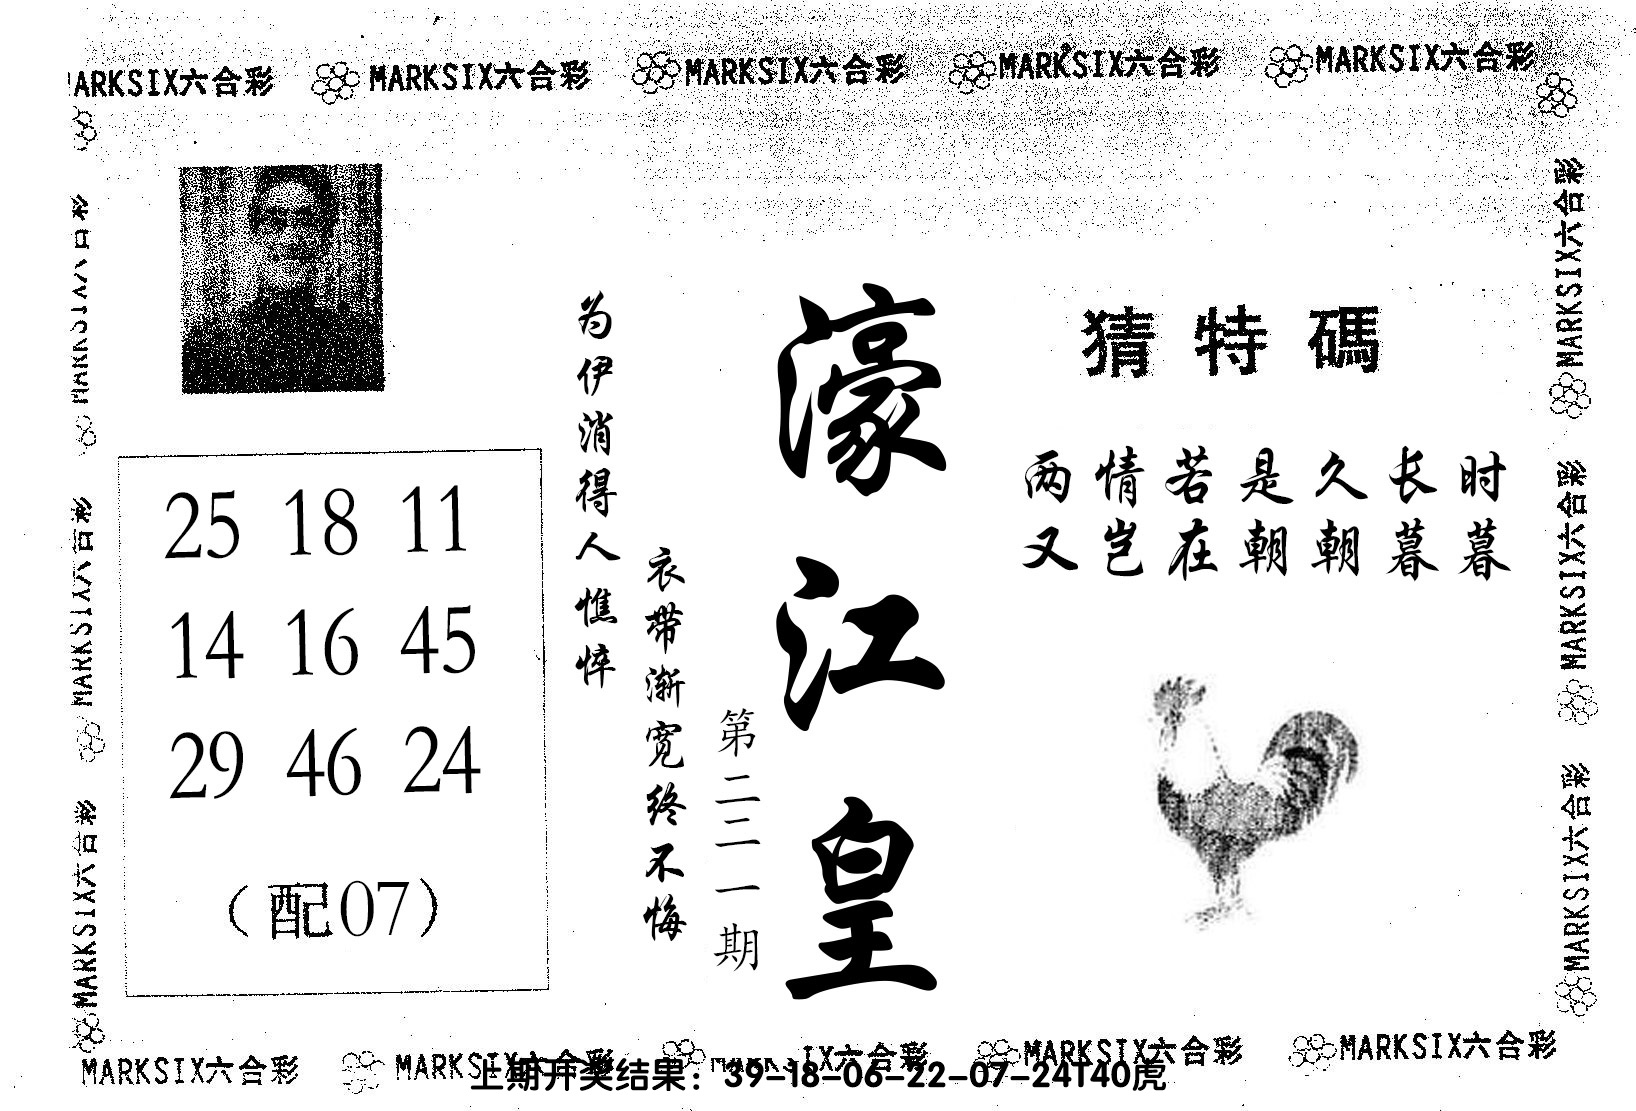 MARKSIX六合彩 MARKSIX六合彩 MARKSIX六合彩 MARKSIX六合彩
猜特碼
两情若是久长时
又岂在朝朝暮暮
濠江皇
第二二一期
为伊消得人憔悴
衣带渐宽终不悔
25 18 11
14 16 45
29 46 24
（配07）
MARKSIX六合彩
MARKSIX六合彩
MARKSIX六合彩
MARKSIX六合彩
MARKSIX六合彩
MARKSIX六合彩 MARKSIX六合彩 MARKSIX六合彩 MARKSIX六合彩
上期开奖结果：39-18-06-22-07-24T40虎